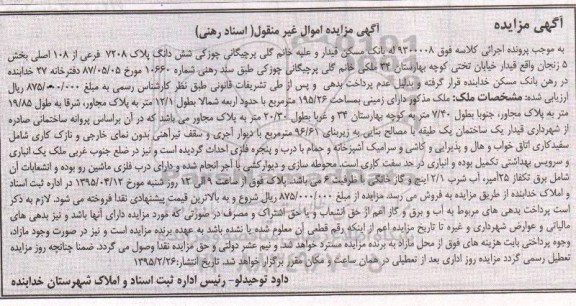 آگهی مزایده
آگهی مزایده اموال غیر منقول( اسناد رهنی)
به موجب پرونده اجرائی کلاسه فوق ۹۳۰۰۰۰۸ له بانک مسکن قیدار و علیه خانم گلی پرچیگانی چوزکی شش دانگ پلاک ۷۲۰۸ فرعی از ۱۰۸ اصلی بخش
۵ زنجان واقع قیدار خیابان تختی کوچه بهارستان ۳۴ ملکی خانم گلی پرچیگانی چوزکی طبق سند رهنی شماره ۱۰۶۶۰ مورخ ۸۷/۰۵/۰۵ دفترخانه ۲۷ خدابنده
در رهن بانک مسکن خدابنده قرار گرفته و بدلیل عدم پرداخت بدهی و پس از طی تشریفات قانونی طبق نظر کارشناس رسمی به مبلغ ۸۷۵/۰۰۰/۰۰۰ ریال
ارزیابی شده: مشخصات ملک: ملک مذکور دارای زمینی بمساحت ۱۹۵/۲۶ مترمربع با حدود اربعه شمالا بطول ۱۲/۱ متر به پلاک مجاور، شرقا به طول ۱۹/۸۵
متر به پلاک مجاور، جنوبا بطول ۷/۴۰ متر به کوچه بهارستان ۳۴ و غربا بطول ۲۰/۳۰ متر به پلاک مجاور می باشد که در آن براساس پروانه ساختمانی صادره
از شهرداری قیدار یک ساختمان یک طبقه با مصالح بنایی به زیربنای ۹۶/۶۱ مترمربع با دیوار آجری و سقف تیرآهنی بدون نمای خارجی و نازک کاری شامل
سفیدکاری اتاق خواب و هال و پذیرایی و کاشی و سرامیک آشپزخانه و حمام با درب و پنجره فلزی احداث گردیده است و نیز در ضلع جنوب غربی ملک یک انباری
و سرویس بهداشتی تکمیل بوده و انباری در حد سفت کاری است. محوطه سازی و دیوارکشی با آجر انجام شده و دارای درب فلزی ماشین رو بوده و انشعابات آن
شامل برق تکفاز ۲۵آمپر، آب شرب ۲/۱ اینچ و گاز خانگی با ظرفیت ۶ می باشد. پلاک فوق از ساعت ۹ الی ۱۲ روز شنبه مورخ ۱۳۹۵/۰۴/۱۲ در اداره ثبت اسناد
و املاک خدابنده از طریق مزایده به فروش می رسد. مزایده از مبلغ ۸۷۵/۰۰۰/۰۰۰ ریال شروع و به بالاترین قیمت پیشنهادی نقدا فروخته می شود. لازم به ذکر
است پرداخت بدهی های مربوط به آب و برق و گاز اعم از حق انشعاب و یا حق اشتراک و مصرف در صورتی که مورد مزایده دارای آنها باشد و نیز بدهی های
مالیاتی و عوارض شهرداری و غیره تا تاریخ مزایده اعم از اینکه رقم قطعی آن معلوم شده یا نشده باشد به عهده برنده مزایده است و نیز در صورت وجود مازاد،
وجوه پرداختی بابت هزینه های فوق از محل مازاد به برنده مزایده مسترد خواهد شد. و نیم عشر دولتی و حق مزایده نقدا وصول می گردد. ضمنا چنانچه روز مزایده
تعطیل رسمی گردد مزایده روز اداری بعد از تعطیلی در همان ساعت و مکان مقرر برگزار خواهد شد. تاریخ انتشار: ۱۳۹۵/۲/۲۶
داود توحیدلو- رئیس اداره ثبت اسناد و املاک شهرستان خدابنده